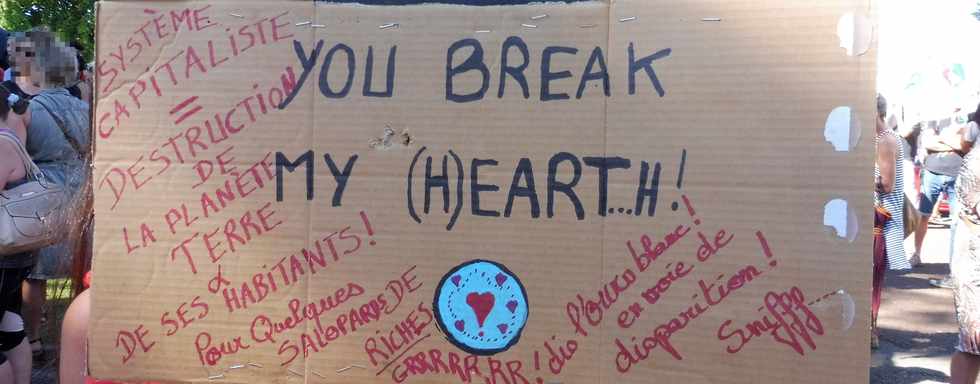 SYSTÈME
CAPITALISTE
=
DESTRUCTION
DE
LA PLANÈTE
TERRE
&
DE SES HABITANTS!
Pour Quelques
SALOPARDS DE
RICHES
GRRRRR,RR! dis l'ours blanc!
en voie de
disparition!
Snifff....
YOU BREAK
MY (H)EART...H!